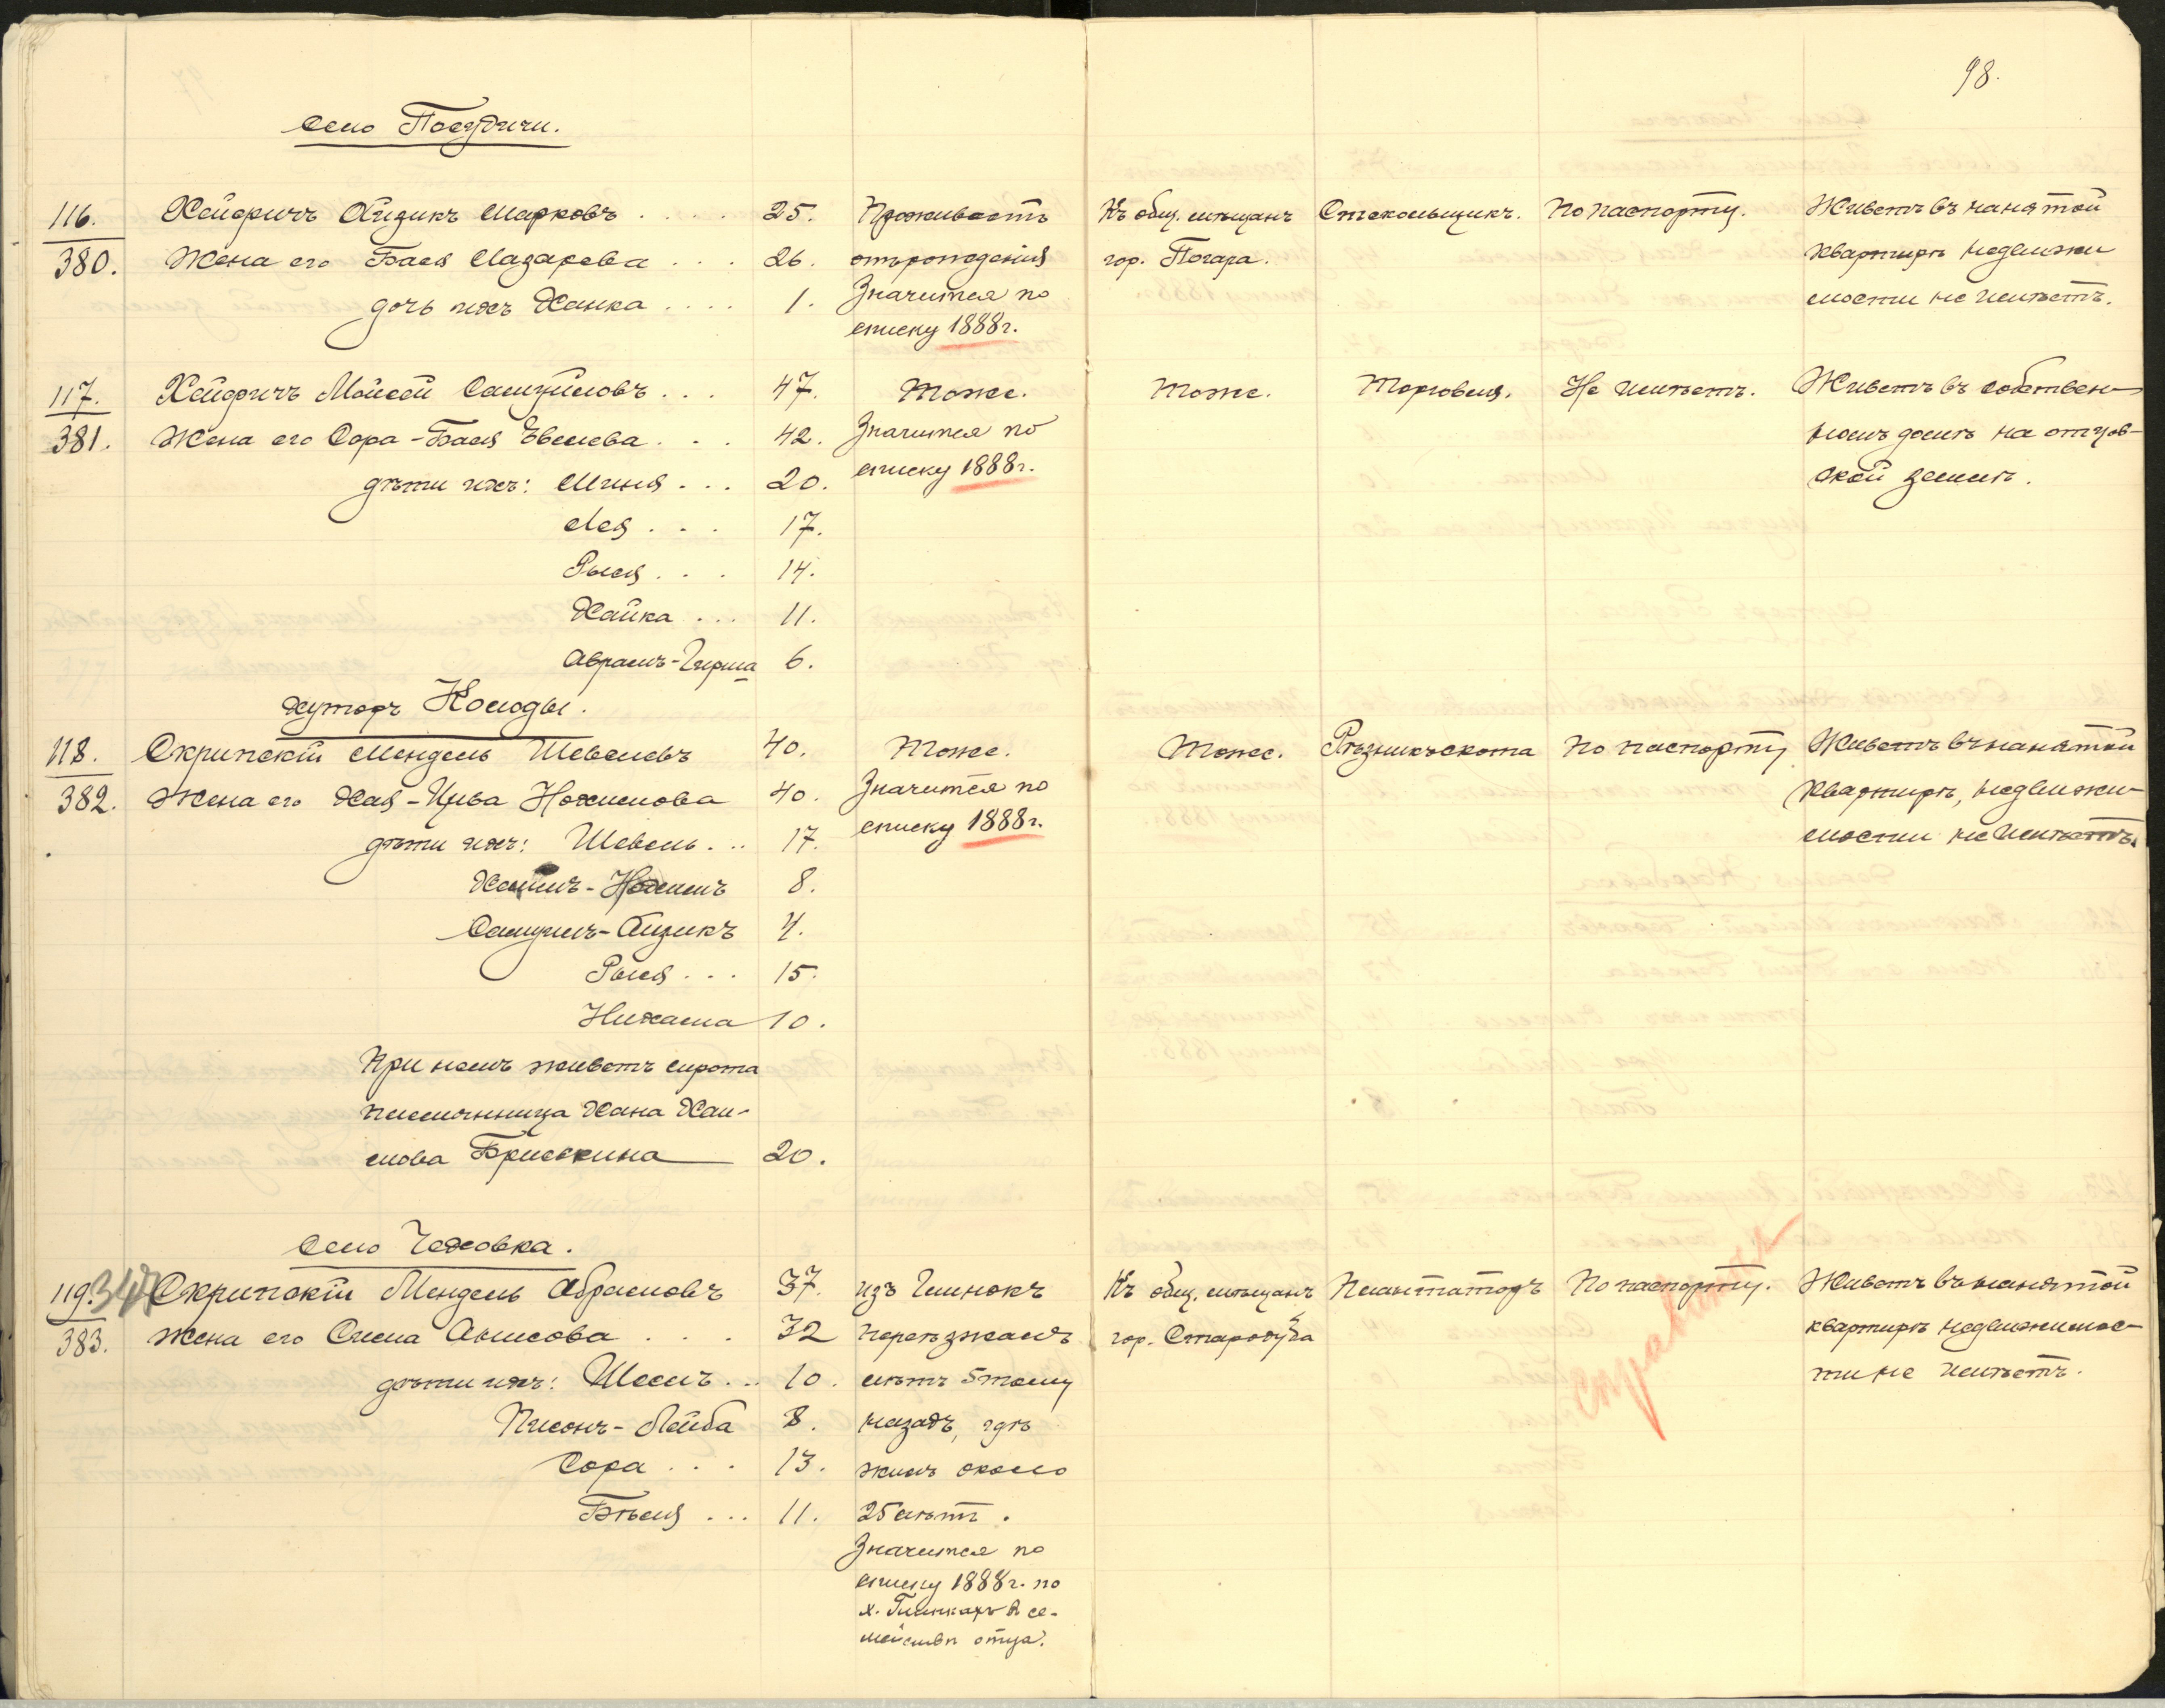 98.
Село Посудичи.
116. Хейфичъ Айзикъ Марковъ . . . . 25. Проживаетъ Къ общ. мѣщанъ Стекольщикъ. По паспорту. Живетъ въ нанятой
380. Жена его Бася Лазарева . . . 26. отъ рожденія гор. Погара. квартирѣ недвижи
дочь ихъ Ханка . . . . 1. Значится по мости не имѣетъ.
списку 1888 г.
117. Хейфичъ Мойсей Самуйловъ . . . 47. Тоже. Тоже. Торговля. Не имѣетъ. Живетъ въ собствен-
381. Жена его Сора-Бася Евелева . . . 42. Значится по номъ домѣ на отцов-
дѣти ихъ: Миня . . . 20. списку 1888 г. ской землѣ.
Лея . . . 17.
Рыся . . . 14.
Хайка . . . 11.
Абрамъ-Гирша 6.
хуторъ Колоды.
118. Скрипскій Мендель Шевелевъ 40. Тоже. Тоже. Рѣзникъ скота По паспорту Живетъ въ нанятой
382. Жена его Хая-Цива Нохимова 40. Значится по квартирѣ, недвижи-
дѣти ихъ: Шевель . . . 17. списку 1888 г. мости не имѣетъ.
Хаимъ-Нохимъ 8.
Самуилъ-Айзикъ 4.
Рыся . . . 15.
Нихама 10.
При немъ живетъ сирота
племянница Хана Хаи-
мова Брискина 20.
Село Чеховка.
119. 347 Скрипскій Мендель Абрамовъ 37. изъ Глинокъ Къ общ. мѣщанъ Плантаторъ По паспорту. Живетъ въ нанятой
383. Жена его Сима Абмсова . . . 32 переѣзжалъ гор. Стародуба справить квартирѣ недвижимос-
дѣти ихъ: Шоемъ . . . 10. лѣтъ 5 тому ти не имѣетъ.
Лейба 8. назадъ, гдѣ
Сора . . . 13. жилъ около
Бѣся . . . 11. 25 лѣтъ.
Значится по
списку 1888 г. по
х. Глинкахъ въ се-
мействѣ отца.